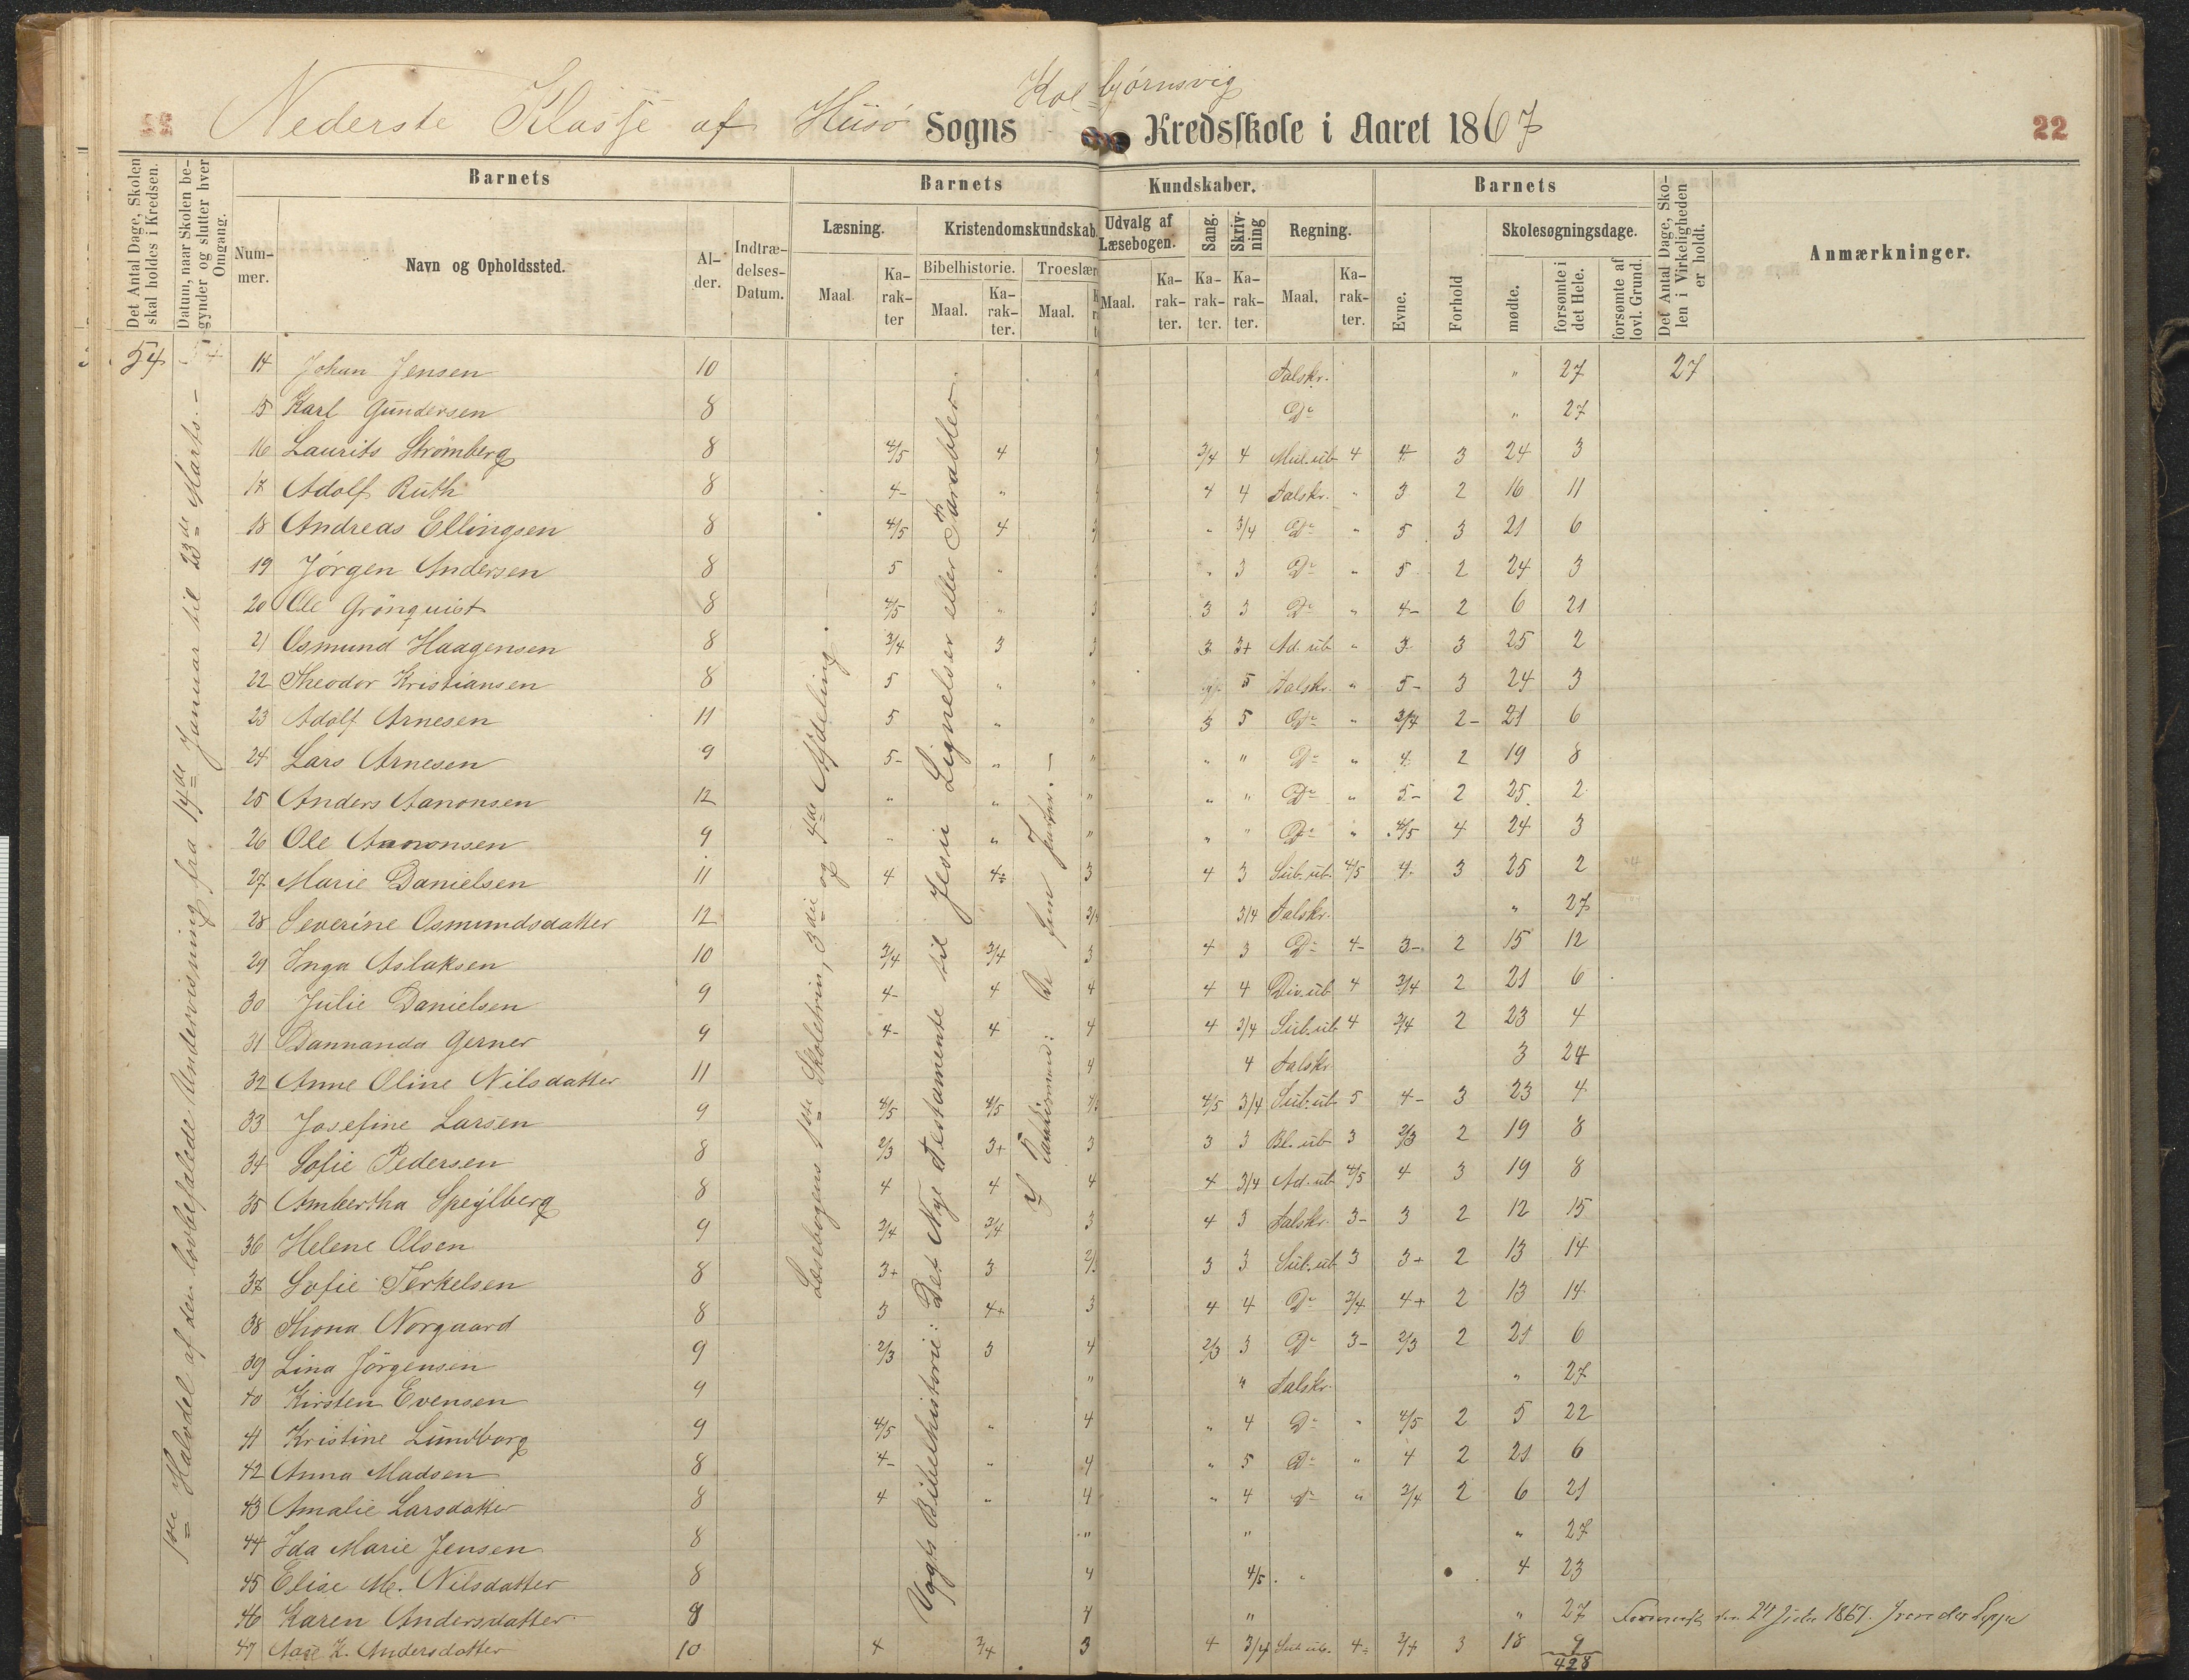 Nederste Klasse af Husö Sogns Kolbjørnsvig Kredsskole i Aaret 1867
22
Det Antal Dage, Skolen skal holdes i Kredsen.
Datum, naar Skolen begynder og slutter hver Omgang.
Barnets
Barnets Kundskaber.
Barnets
Nummer.
Navn og Opholdssted.
Alder.
Indtrædelses-Datum.
Læsning.
Kristendomskundskab.
Udvalg af Læsebogen.
Sang.
Skrivning
Regning.
Evne.
Forhold
Skolesøgningsdage.
Det Antal Dage, Skolen i Virkeligheden er holdt.
Anmærkninger.
Bibelhistorie.
Troeslær
Maal.
Karakter
Maal.
Karakter.
Maal.
Maal.
Karakter.
Karakter.
Karakter.
Maal.
Karakter.
mødte.
forsømte i det Hele.
forsømte af lovl. Grund.
54
1ste Halvdel af den lovbefalede Undervisning fra 14de Januar til 23de Marts. –
Læsebogens 1ste Skoletrin, 3die og 4de Afdeling.
Vogts Bibelhistorie: Det Nye Testamente til Jesu Lignelser eller Parabler.
14 Johan Jensen 10 Talskr. " 27 27
15 Karl Gundersen 8 Do " 27
16 Laurits Strømberg 8 4/5 4 3/4 4 Mul. ub 4 4 3 24 3
17 Adolf Ruth 8 4- " 4 4 Talskr. " 3 2 16 11
18 Andreas Ellingsen 8 4/5 4 " 3/4 Do " 5 3 21 6
19 Jørgen Andersen 8 5 " " 3 Do " 5 2 24 3
20 Ole Grönquist 8 4/5 " 3 3 3 Do " 4- 2 6 21
21 Osmund Haagensen 8 3/4 3 3 3 3+ Ad. ub " 3 3 25 2
22 Theodor Kristiansen 8 5 " " 5 Talskr. " 5- 3 24 3
23 Adolf Arnesen 11 5 " " 3 5 Do " 3/4 2- 21 6
24 Lars Arnesen 9 5- " " " " Do " 4 2 19 8
25 Anders Aanonsen 12 " " " " " Do " 5- 2 25 2
26 Ole Aanonsen 9 " " " " " Do " 4/5 4 24 3
27 Marie Danielsen 11 4 4- 3 4 3 Sub. ub. 4/5 4 3 25 2
28 Severine Osmundsdatter 12 3/4 Talskr. " 27
29 Inga Aslaksen 10 3/4 3/4 3 4 3 Do 4- 3- 2 15 12
30 Julie Danielsen 9 4- 4 4 4 4 Div. ub 4 3/4 2 21 6
31 Gerner 9 4- 4 4 4 3/4 Sub. ub 4 3/4 2 23 4
32 Anne Oline Nilsdatter 11 4 4 Talskr 3 24
33 Josefine Larsen 9 4/5 4/5 4/5 3/4 Sub. ub 5 4- 3 23 4
34 Sofie Pedersen 8 2/3 3+ 3 3 3 Bl. ub 3 2/3 2 19 8
35 Ambertha Speylberg 8 4 4 4 4 3/4 Ad. ub 4/5 4 3 19 8
36 Helene Olsen 9 3/4 3/4 3 4 3 Talskr. 3- 3 2 12 15
37 Sofie Terkelsen 8 3+ 3 3 3 Sub. ub 3 3+ 2 13 14
38 Thona Norgaard 8 3 4+ 3 4 4 Do 3/4 4+ 2 13 14
39 Lina Jörgensen 9 2/3 3 4 2/3 3 Do 3- 2/3 2 21 6
40 Kirsten Evensen 9 " " Talskr. " 27
41 Kristine Lundborg 9 4/5 " 4 " 4 Do " 4/5 2 5 22
42 Anna Madsen 8 4- " 4 " 5 Do " 4 2 21 6
43 Amalie Larsdatter 8 4 " 4 " 4 Do " 3/4 2 6 21
44 Ida Marie Jensen 8 " " " 27
45 Elise M. Nilsdatter 8 4 4/5 " 4 23
46 Karen Andersdatter 8 4 " " 27 den 24 1867.
47 Aase K. Andersdatter 10 4 3/4 3 4 3/4 Sub. ub. 4- 3/4 3 18 9
428